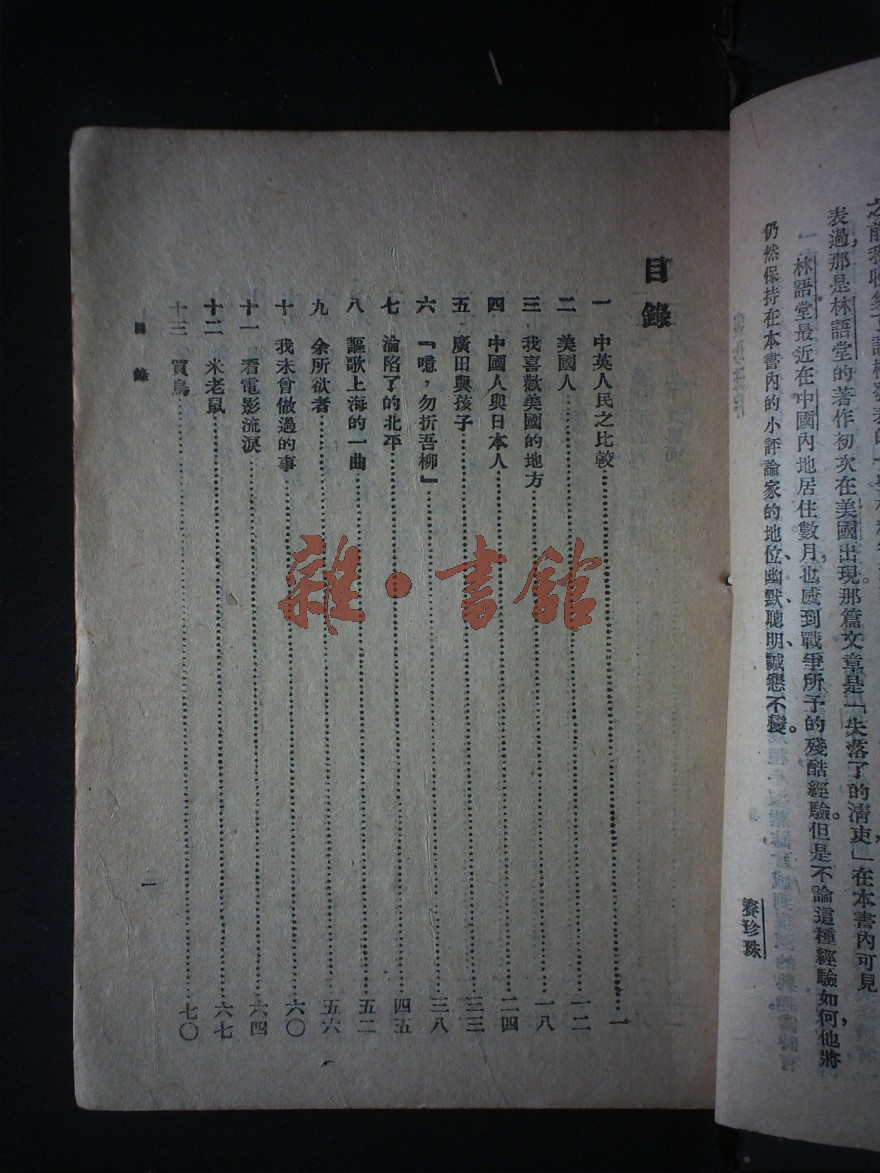 表過，那是林語堂的著作初次在美國出現那篇文章是「失落了的清吏」在本書內可見
一林語堂最近在中國內地居住數月，也感到戰爭所予的殘酷經驗。但是不論這種經驗如何，他將
仍然保持在本書內的小評論家的地位幽默、聰明、誠懇、不變。
賽珍珠
目錄
一 中英人民之比較 一
二 美國人 一二
三 我喜歡美國的地方 一八
四 中國人與日本人 二四
五 廣田與孩子 三三
六 『噫，勿折吾柳』 三八
七 淪陷了的北平 四五
八 謳歌上海的一曲 五二
九 余所欲者 五六
十 我未曾做過的事 六〇
十一 看電影流淚 六四
十二 米老鼠 六七
十三 買鳥 七〇
目錄
一
雜·書館